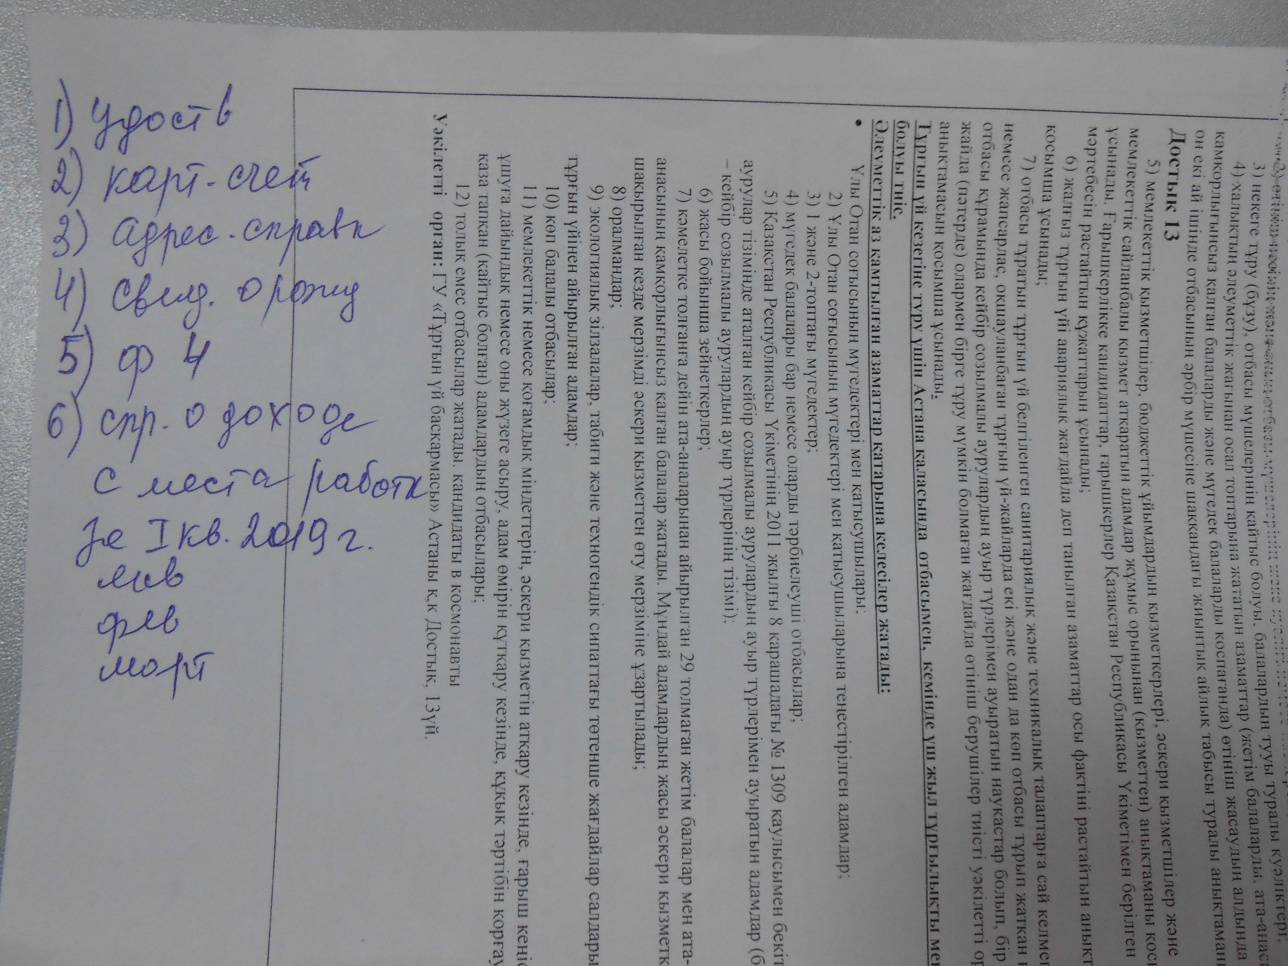 3) некеге тұру (бұзу), отбасы мүшелерінің қайтыс болуы, балалардың тууы туралы куәліктері,
4) халықтың әлеуметтік жағынан осал топтарына жататын азаматтар (жетім балаларды, ата-анасы
қамқорлығынсыз қалған балаларды және мүгедек балаларды қоспағанда) өтініш жасаудың алдында
он екі ай ішінде отбасының әрбір мүшесіне шаққандағы жиынтық айлық табысы туралы анықтаманы
Достык 13
5) мемлекеттік қызметшілер, бюджеттік ұйымдардың қызметкерлері, әскери қызметшілер және
мемлекеттік сайланбалы қызмет атқаратын адамдар жұмыс орынынан (қызметтен) анықтаманы қос
ұсынады, Ғарышкерлікке кандидаттар, ғарышкерлер Қазақстан Республикасы Үкіметімен берілген
мәртебесін растайтын құжаттарын ұсынады;
6) жалғыз тұрғын үйі авариялық жағдайда деп танылған азаматтар осы фактіні растайтын анықт
қосымша ұсынады;
7) отбасы тұратын тұрғын үй белгіленген санитариялық және техникалық талаптарға сай келме
немесе жапсарлас, оқшауланбаған тұрғын үй-жайларда екі және одан да көп отбасы тұрып жатқан
отбасы құрамында кейбір созылмалы аурулардың ауыр түрлерімен ауыратын науқастар болып, бір
жайда (пәтерде) олармен бірге тұру мүмкін болмаған жағдайда өтініш берушілер тиісті уәкілетті ор
анықтамасын қосымша ұсынады.
Тұрғын үй кезегіне тұру үшін Астана қаласында отбасымен, кемінде үш жыл тұрғылықты мек
болуы тиіс.
Әлеуметтік аз қамтылған азаматтар қатарына келесілер жатады:
• Ұлы Отан соғысының мүгедектері мен қатысушылары:
2) Ұлы Отан соғысының мүгедектері мен қатысушыларына теңестірілген адамдар;
3) 1 және 2-топтағы мүгедектер;
4) мүгедек балалары бар немесе оларды тәрбиелеуші отбасылар;
5) Қазақстан Республикасы Үкіметінің 2011 жылғы 8 қарашадағы № 1309 қаулысымен бекіт
аурулар тізімінде аталған кейбір созылмалы аурулардың ауыр түрлерімен ауыратын адамдар (б
– кейбір созылмалы аурулардың ауыр түрлерінің тізімі);
6) жасы бойынша зейнеткерлер;
7) кәмелетке толғанға дейін ата-аналарынан айырылған 29 толмаған жетім балалар мен ата-
анасының қамқорлығынсыз қалған балалар жатады. Мұндай адамдардың жасы әскери қызметк
шақырылған кезде мерзімді әскери қызметтен өту мерзіміне ұзартылады;
8) оралмандар;
9) экологиялық зілзалалар, табиғи және техногендік сипаттағы төтенше жағдайлар салдары
тұрғын үйінен айырылған адамдар;
10) көп балалы отбасылар;
11) мемлекеттік немесе қоғамдық міндеттерін, әскери қызметін атқару кезінде, ғарыш кеңіс
ұшуға дайындық немесе оны жүзеге асыру, адам өмірін құтқару кезінде, құқық тәртібін қорғау
қаза тапқан (қайтыс болған) адамдардың отбасылары;
12) толық емес отбасылар жатады. кандидаты в космонавты
Уәкілетті орган: ГУ «Тұрғын үй басқармасы» Астаны қ.к Достык, 13үй.
1) удоств
2) карт-счет
3) адрес.справк
4) свид. о рожд
5) ф 4
6) спр. о доходе
с места работы
за I кв. 2019 г.
янв
фев
март